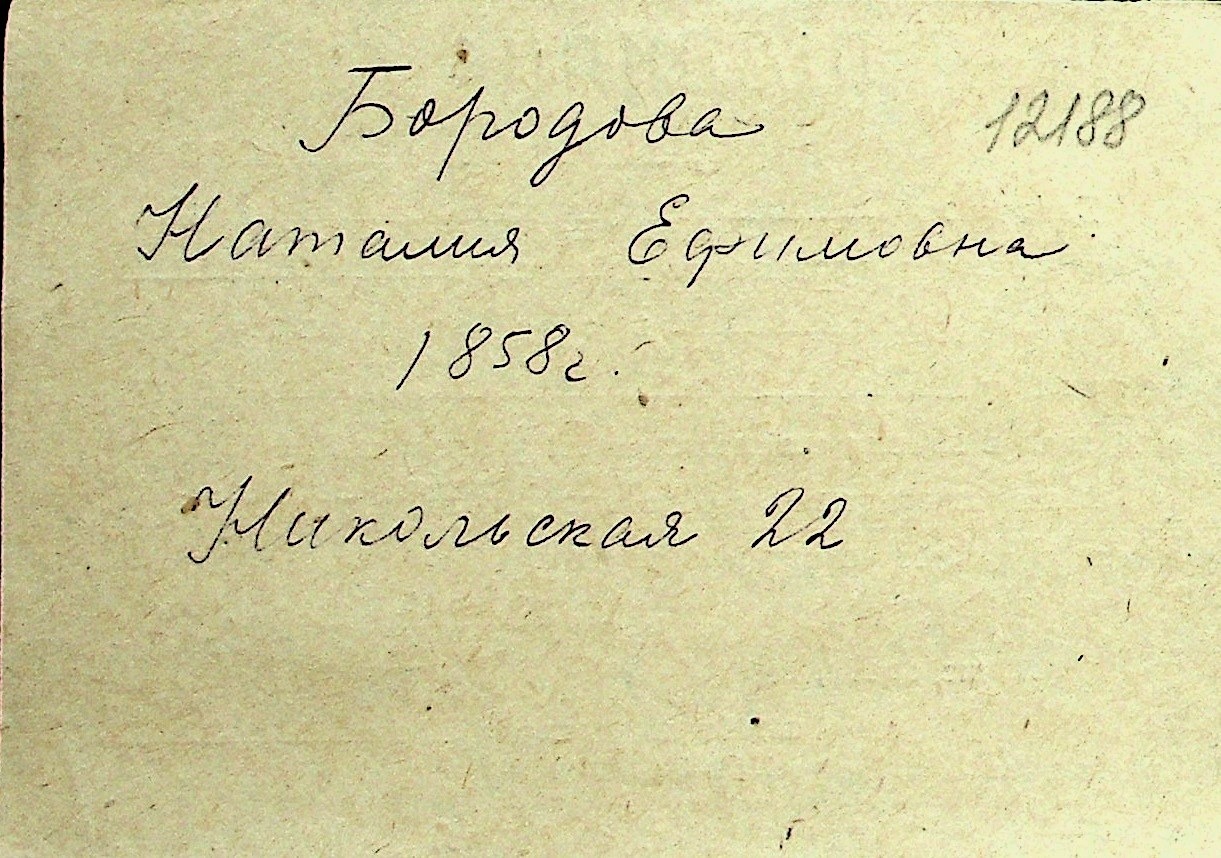 Бородова 12188
Наталия Ефимовна
1858г.
Никольская 22